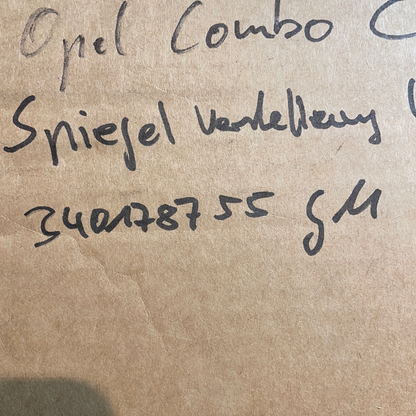 Opel Combo C
Spiegel Verstellung
340178755 GM